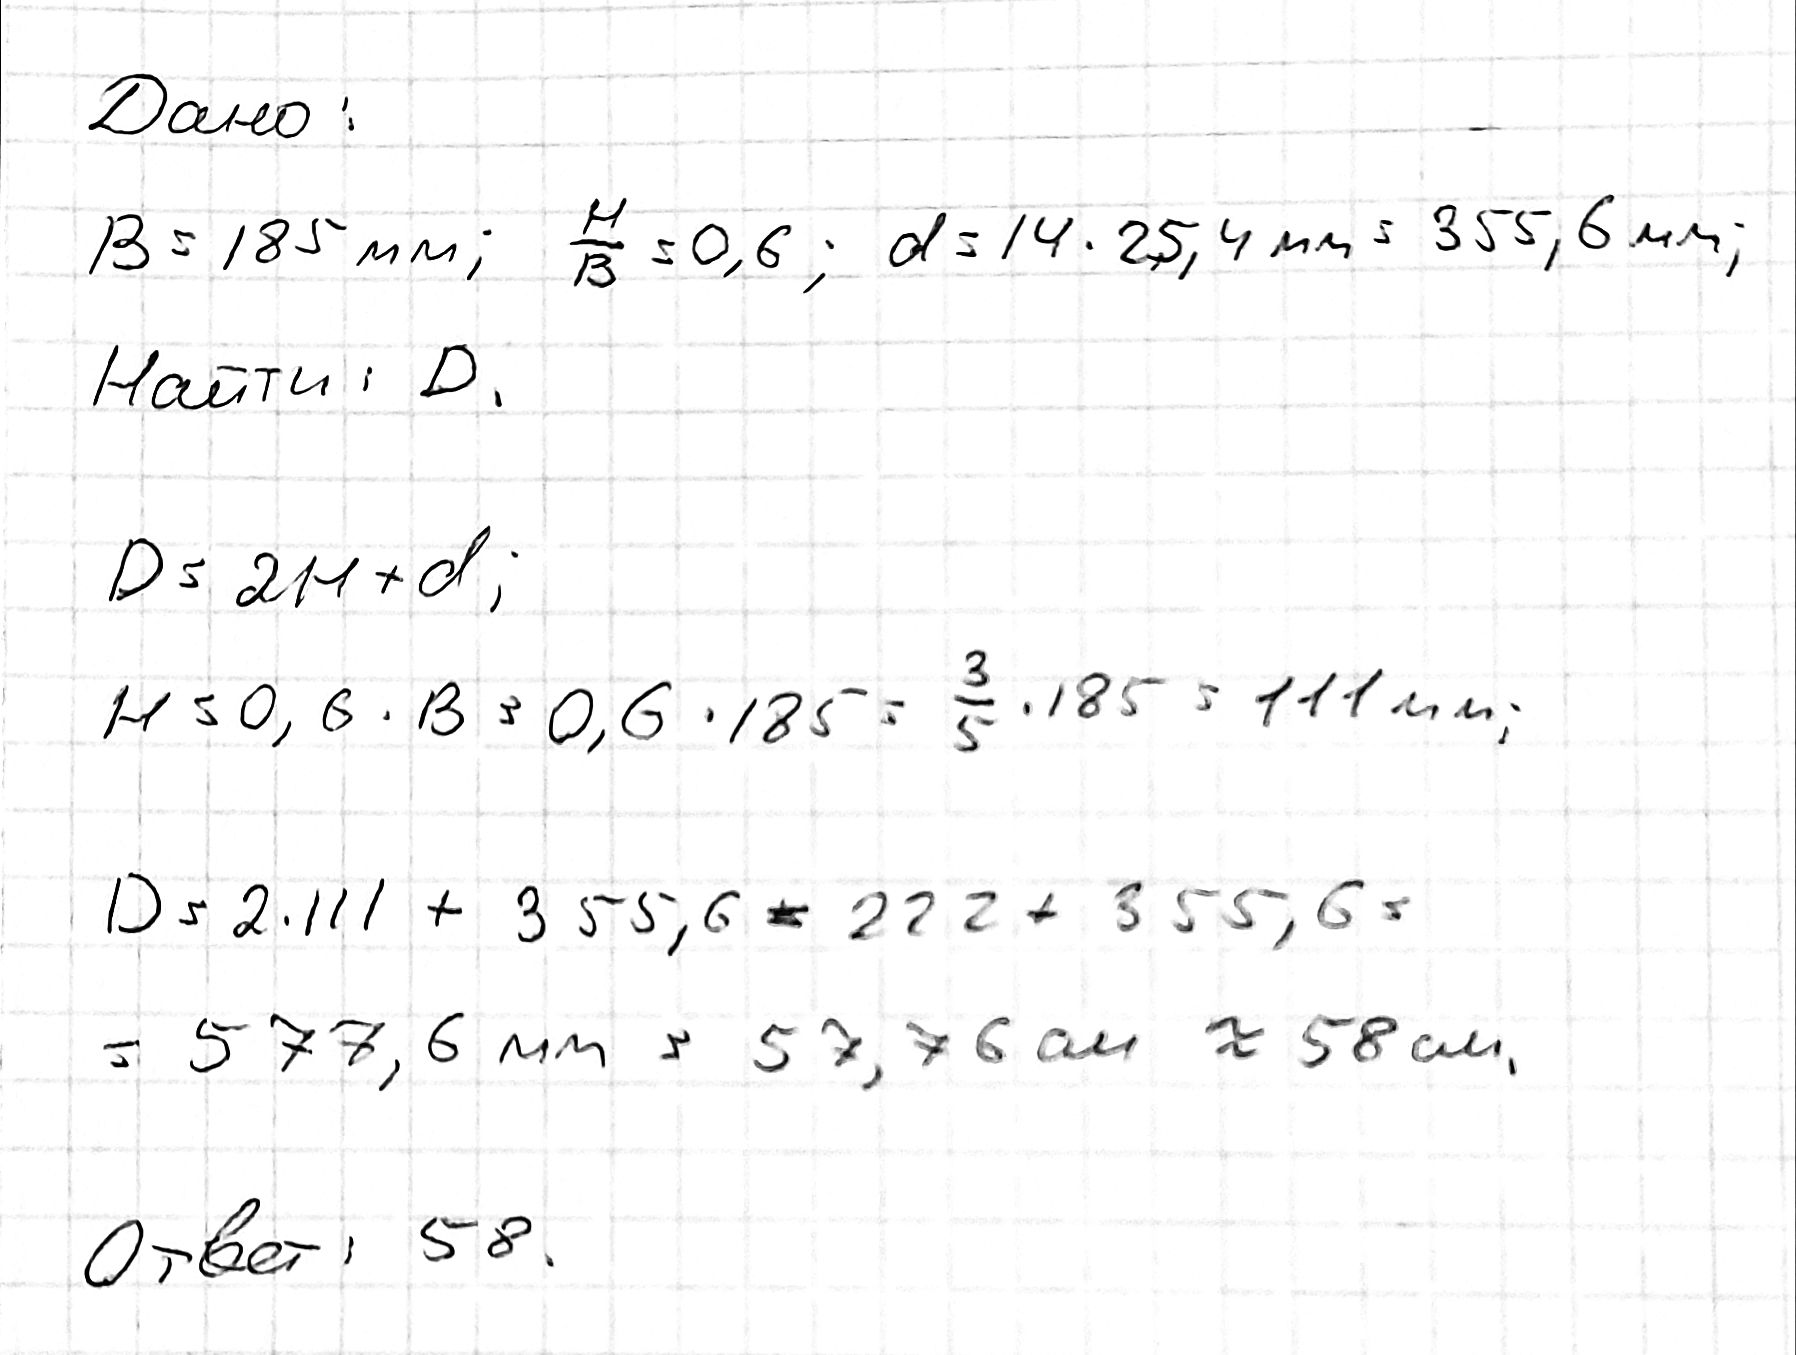 Дано:
B = 185 мм; H/B = 0,6; d = 14 · 25,4 мм = 355,6 мм;
Найти: D.
D = 2H + d;
H = 0,6 · B = 0,6 · 185 = 3/5 · 185 = 111 мм;
D = 2 · 111 + 355,6 = 222 + 355,6 =
= 577,6 мм = 57,76 см ≈ 58 см.
Ответ: 58.